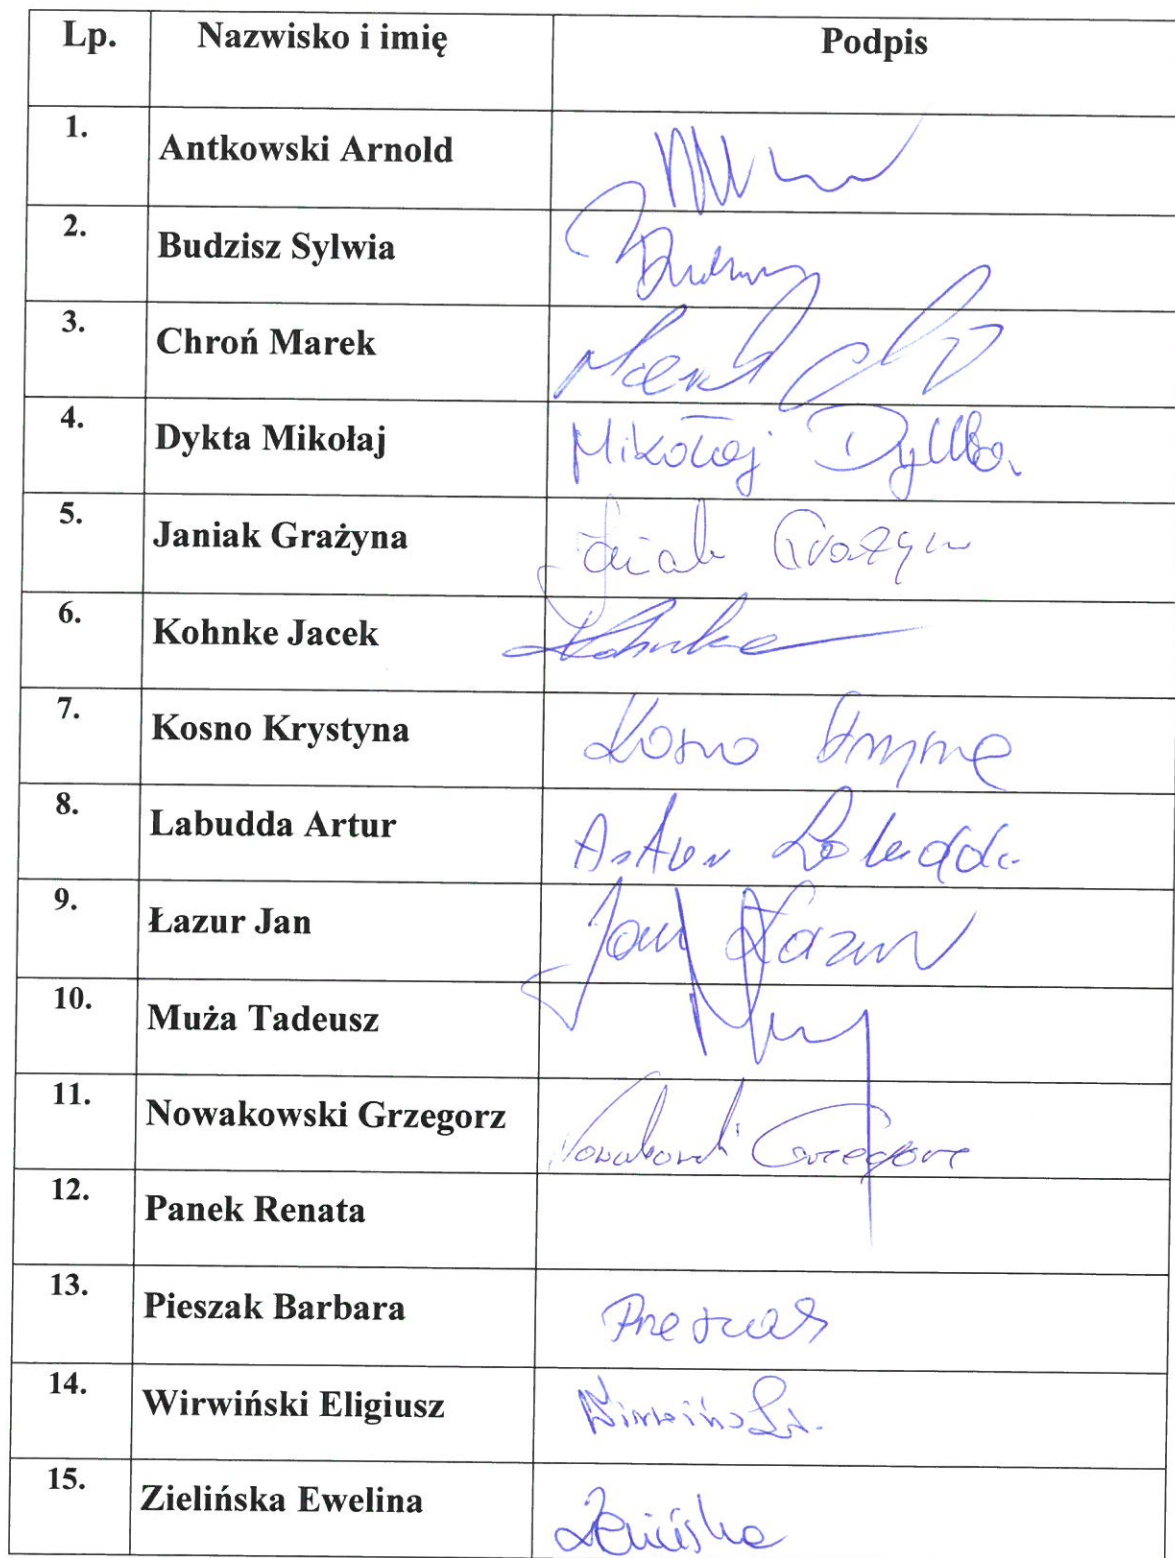 Lp. Nazwisko i imię Podpis
1. Antkowski Arnold
2. Budzisz Sylwia
3. Chroń Marek Marek
4. Dykta Mikołaj Mikołaj Dykta
5. Janiak Grażyna Janiak Grażyna
6. Kohnke Jacek Kohnke
7. Kosno Krystyna Kosno Krystyna
8. Labudda Artur Artur Labudda
9. Łazur Jan Jan Łazur
10. Muża Tadeusz
11. Nowakowski Grzegorz Nowakowski Grzegorz
12. Panek Renata
13. Pieszak Barbara Pieszak
14. Wirwiński Eligiusz Wirwiński
15. Zielińska Ewelina Zielińska